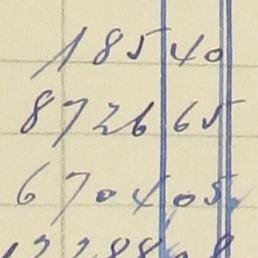 185 40
8726 65
6704 05